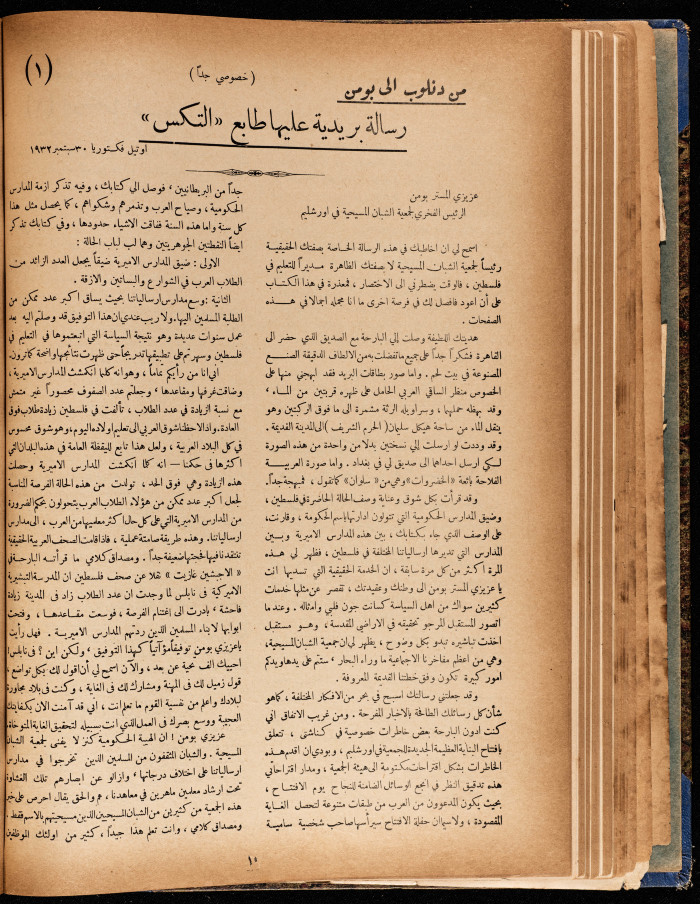 (١)
(خصوصي جداً)
من دنلوب الى بومن
رسالة بريدية عليها طابع «التكس»
اوتيل فكتوريا ٣٠ سبتمبر ١٩٣٢
عزيزي المستر بومن
الرئيس الفخري لجمعية الشبان المسيحية في اورشليم
اسمح لي ان اخاطبك في هذه الرسالة الخاصة بصفتك الحقيقية
رئيساً لجمعية الشبان المسيحية لا بصفتك الظاهرة مديراً للتعليم في
فلسطين ، فالوقت يضطرني الى الاختصار ، فمعذرة في هذا الكتاب
على أن اعود فافصل لك في فرصة اخرى ما انا مجمله اجمالا في هذه
الصفحات .
هديتك اللطيفة وصلت إلي البارحة مع الصديق الذي حضر الى
القاهرة فشكراً جداً على جميع ما تفضلت به من الالطاف الدقيقة الصنع
المصنوعة في بيت لحم . واما صور بطاقات البريد فقد ابهجني منها على
الخصوص منظر الساقي العربي الحامل على ظهره قربتين من الماء ،
وقد بهظه حملهما ، وسراويله الرثة مشمرة الى ما فوق الركبتين وهو
ينقل الماء من ساحة هيكل سليمان ( الحرم الشريف ) الى المدينة القديمة .
وقد وددت لو ارسلت إلي نسختين بدلا من واحدة من هذه الصورة
لكي ارسل احداهما الى صديق لي في بغداد . واما صورة العربية
الفلاحة بائعة «الخضروات» وهي من « سلوان » كما تقول ، فمبهجة جداً.
وقد قرأت بكل شوق وعناية وصف الحالة الحاضرة في فلسطين ،
وضيق المدارس الحكومية التي تتولون ادارتها باسم الحكومة ، وقارنت،
على الوصف الذي جاء بكتابك ، بين هذه المدارس الاميرية وبين
المدارس التي تديرها ارسالياتنا المختلفة في فلسطين ، فظهر لي هذه
المرة اكثر من كل مرة سابقة ، ان الخدمة الحقيقية التي تسديها انت
يا عزيزي المستر بومن الى وطنك وعقيدتك ، تقصر عن مثلها خدمات
كثيرين سواك من اهل السياسة كسانت جون فلبي وامثاله . وعندما
اتصور المستقبل المرجو تحقيقه في الاراضي المقدسة ، وهو مستقبل
اخذت تباشيره تبدو بكل وضوح ، يظهر لي ان جمعية الشبان المسيحية،
وهي من اعظم مفاخرنا الاجتماعية ما وراء البحار ، ستتم على يدها ويدكم
امور كبيرة تكون وفق خطتنا القديمة المعروفة .
وقد جعلتني رسالتك اسبح في بحر من الافكار المختلفة ، كما هو
شأن كل رسائلك الطافحة بالاخبار المفرحة . ومن غريب الاتفاق اني
كنت ادون البارحة بعض خاطرات خصوصية في كناشتي ، تتعلق
بافتتاح البناية العظيمة الجديدة للجمعية في اورشليم ، وبودي ان اقدم هذه
الخاطرات بشكل اقتراحات مكتومة الى هيئة الجمعية ، ومدار اقتراحاتي
هذه تدقيق النظر في انجع الوسائل الضامنة للنجاح يوم الافتتاح ،
بحيث يكون المدعوون من العرب من طبقات متنوعة لتحصل الغاية
المقصودة ، ولا سيما ان حفلة الافتتاح سيرأسها صاحب شخصية سامية
جداً من البريطانيين . وصل الي كتابك ، وفيه تذكر ازمة المدارس
الحكومية ، وصياح العرب وتذمرهم وشكواهم ، كما يحصل مثل هذا
كل سنة واما هذه السنة ففاقت الاشياء حدودها ، وفي كتابك تذكر
ايضاً النقطتين الجوهريتين وهما لب لباب الحالة :
الاولى : ضيق المدارس الاميرية ضيقاً يجعل العدد الزائد من
الطلاب العرب في الشوارع والبساتين والازقة .
الثانية : وسع مدارس ارسالياتنا بحيث يساق اكبر عدد ممكن من
الطلبة المسلمين اليها. ولا ريب عندي ان هذا التوفيق قد وصلتم اليه بعد
عمل سنوات عديدة وهو نتيجة السياسة التي اتبعتموها في التعليم في
فلسطين وسهرتم على تطبيقها تدريجاً حتى ظهرت نتائجها واضحة كما ترون.
اني انا من رأيكم تماماً ، وهو انه كلما انكمشت المدارس الاميرية ،
وضاقت غرفها ومقاعدها ، وجعلتم عدد الصفوف محصوراً غير متمش
مع نسبة الزيادة في عدد الطلاب ، تألفت في فلسطين زيادة طلاب فوق
العادة. واذا لاحظنا شوق العربي الى تعليم اولاده اليوم ، وهو شوق محسوس
في كل البلاد العربية ، ولعل هذا تابع لليقظة العامة في هذه البلدان التي
اكثرها في حكمنا — انه كلما انكمشت المدارس الاميرية وحصلت
هذه الزيادة وهي فوق الحد ، تولدت من هذه الحالة الفرصة المناسبة
لجعل اكبر عدد ممكن من هؤلاء الطلاب العرب يتحولون بحكم الضرورة
من المدارس الاميرية التي على كل حال اكثر معلميها من العرب ، الى مدارس
ارسالياتنا. وهذه طريقة صامتة عملية ، فاذا قامت الصحف العربية الحقيقية
تنتقدنا فيها فحجتها ضعيفة جداً . ومصداق كلامي ما قرأته البارحة في
« الاجبشين غازيت » نقلا عن صحف فلسطين ان المدرسة التبشيرية
الاميركية في نابلس لما وجدت ان عدد الطلاب زاد في المدينة زيادة
فاحشة ، بادرت الى إغتنام الفرصة ، فوسعت مقاعدها ، وفتحت
ابوابها لابناء المسلمين الذين ردتهم المدارس الاميرية . فهل رأيت
يا عزيزي بومن توفيقاً مؤاتياً كهذا التوفيق ، ولكن اين ؟ في نابلس!
احييك الف تحية عن بعد ، والآن اسمح لي أن اقول لك بكل تواضع ،
قول زميل لك في المهنة ومشارك لك في الغاية ، وكنت في بلاد مجاورة
لبلادك واعلم من نفسية القوم ما تعلم انت ، اني قد آمنت الان بكفايتك
العجيبة ووسع بصرك في العمل الذي انت بسبيله لتحقيق الغاية المتوخاة.
عزيزي بومن ! ان الهيئة الحكومية كنز لا يفنى لجمعية الشبان
المسيحية . والشبان المثقفون من المسلمين الذين تخرجوا في مدارس
ارسالياتنا على اختلاف درجاتها ، وازالوا عن ابصارهم تلك الغشاوة
تحت ارشاد معلمين ماهرين في معاهدنا، هم والحق يقال احرص على خير
هذه الجمعية من كثيرين من الشبان المسيحيين الذين مسيحيتهم بالاسم فقط .
ومصداق كلامي ، وانت تعلم هذا جيداً ، كثير من اولئك الموظفين
١٥